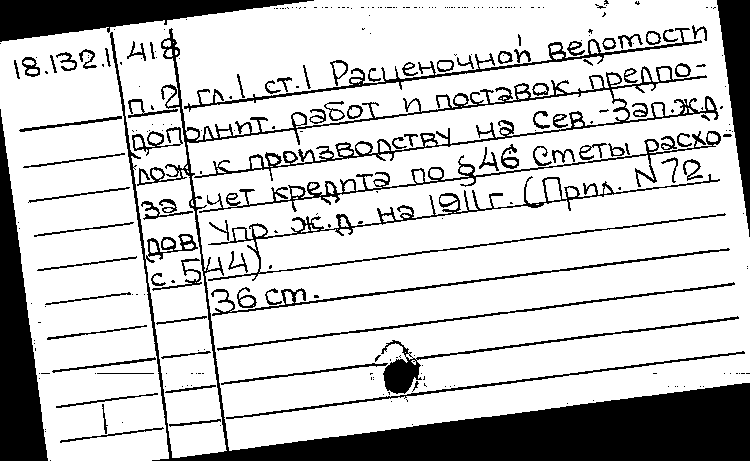 18.132.1.418
п.2, гл.1, ст.1 Расценочной ведомости
дополнит. работ и поставок, предпо-
лож. к производству на Сев.-Зап.ж.д.
за счет кредита по §46 Сметы расхо-
дов Упр. ж.д. на 1911г. (Прил. N72,
с.544).
36 ст.